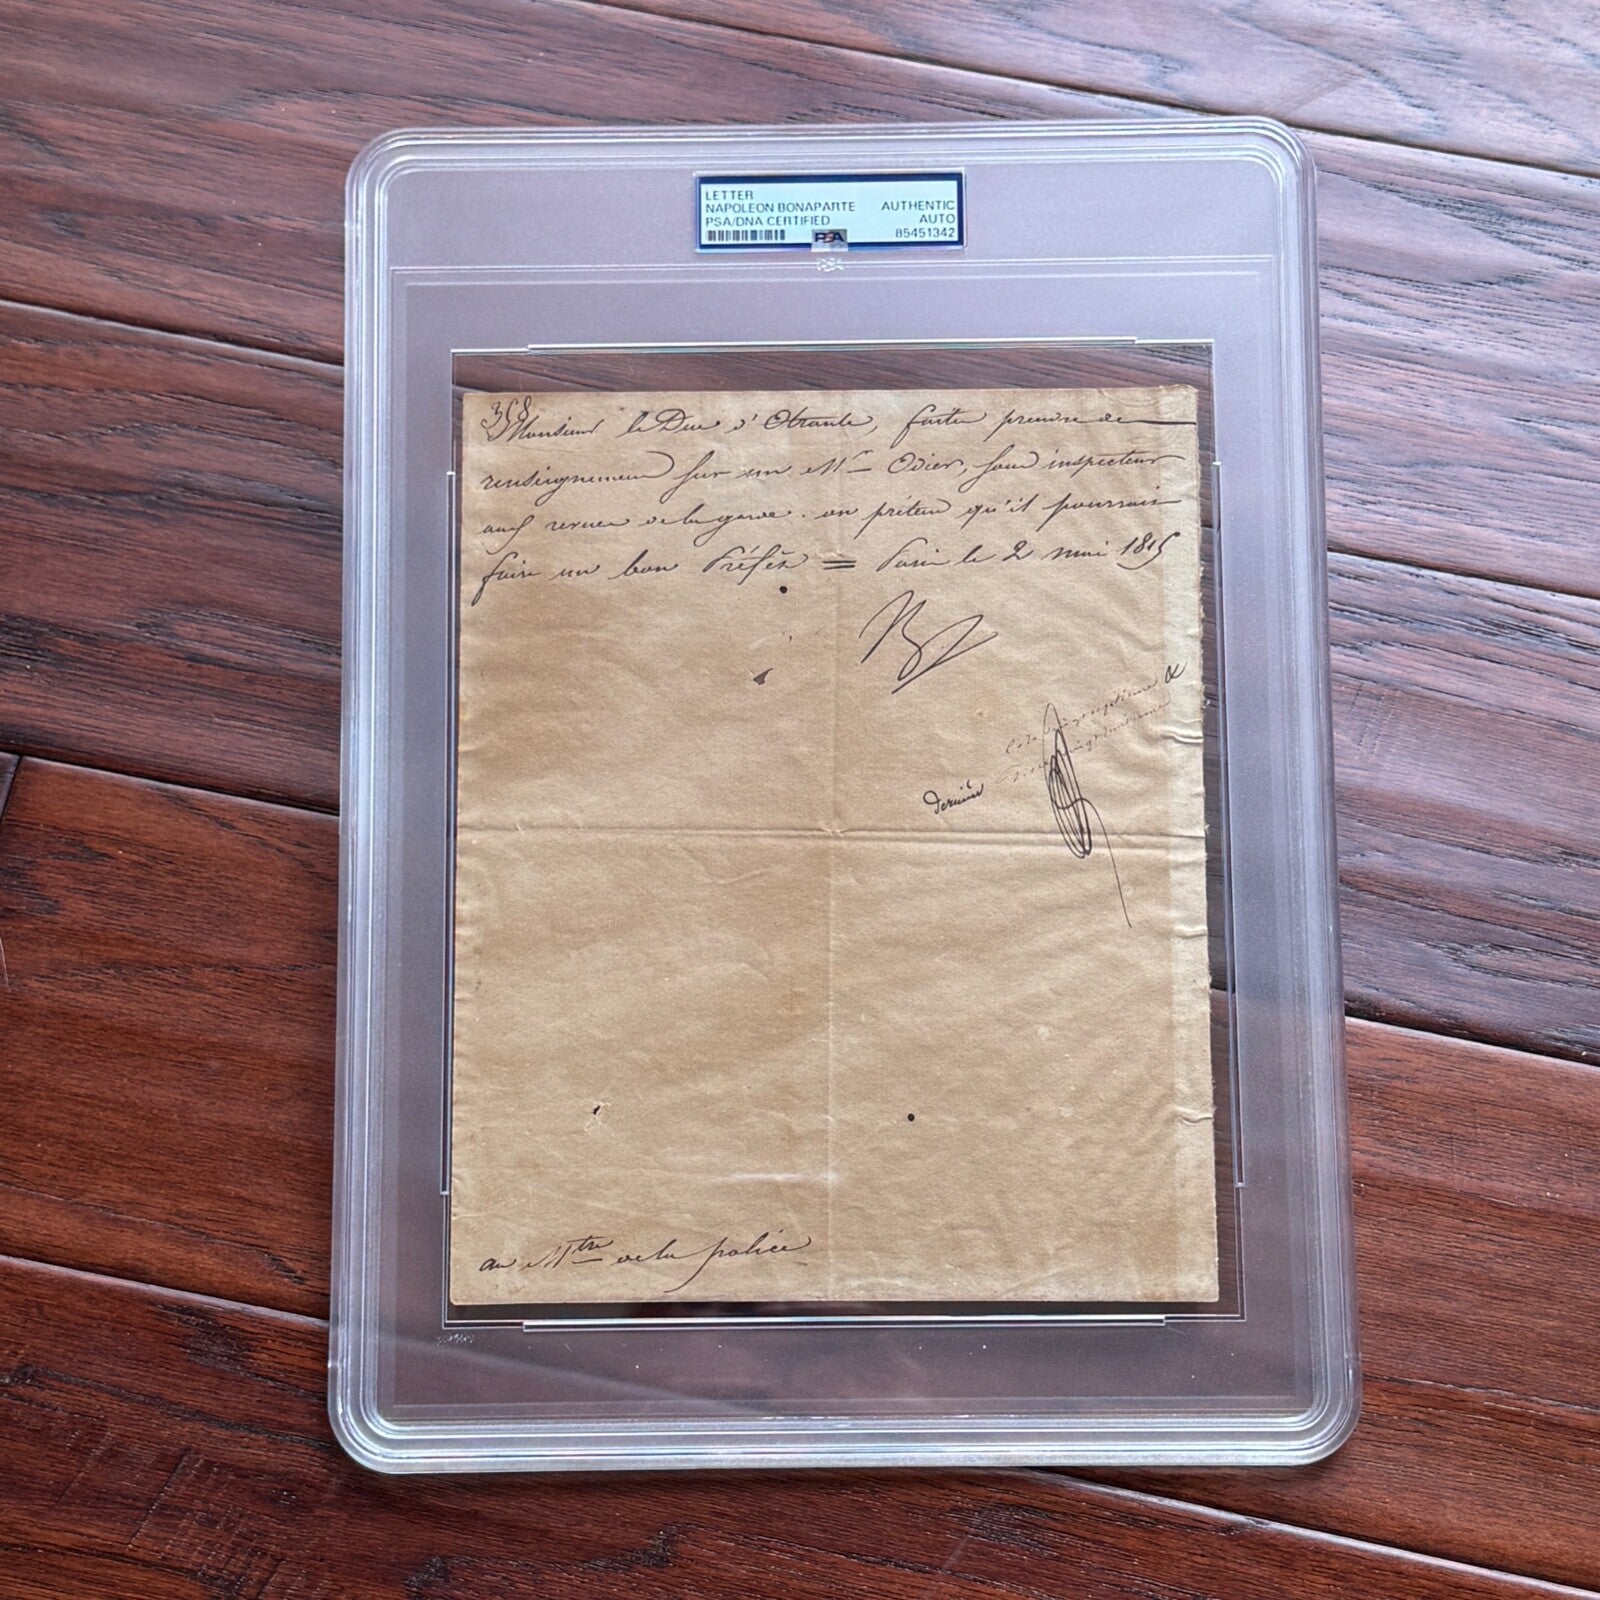 LETTER
NAPOLEON BONAPARTE AUTHENTIC
PSA/DNA CERTIFIED AUTO
PSA 85451342
PSA
358
Monsieur le Duc d'Otrante, faites prendre des
renseignemens sur un Mr Odier, sous inspecteur
aux revues de la garde. on prétend qu'il pourrait
faire un bon Préfet = Paris le 2 mai 1815
dernière
au Mtre de la police